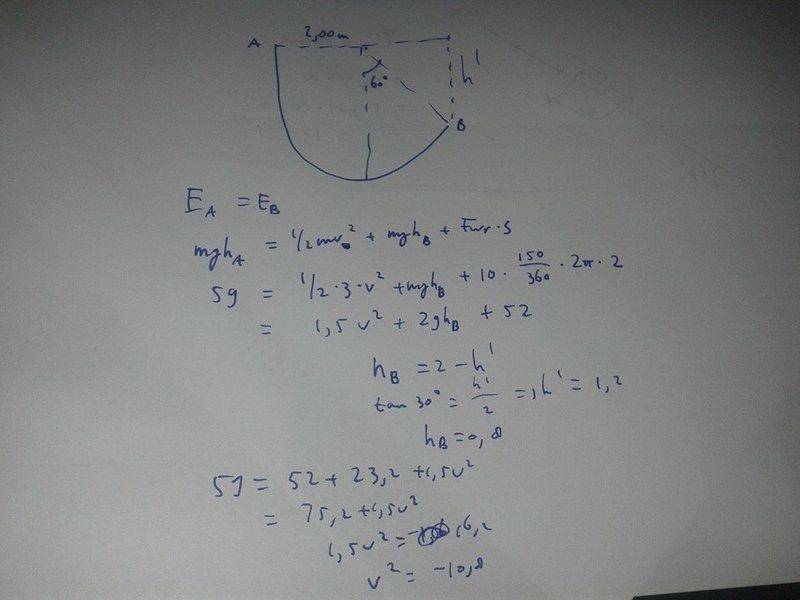 2,00m
A
60°
h'
B
E_A = E_B
mgh_A = 1/2 mv_B² + mgh_B + Fwr · s
59 = 1/2 · 3 · v² + mgh_B + 10 · 150/360 · 2π · 2
= 1,5 v² + 2gh_B + 52
h_B = 2 - h'
tan 30° = h'/2 =, h' = 1,2
h_B = 0,8
59 = 52 + 23,2 + 1,5v²
= 75,2 + 1,5v²
1,5v² = - 16,2
v² = -10,8